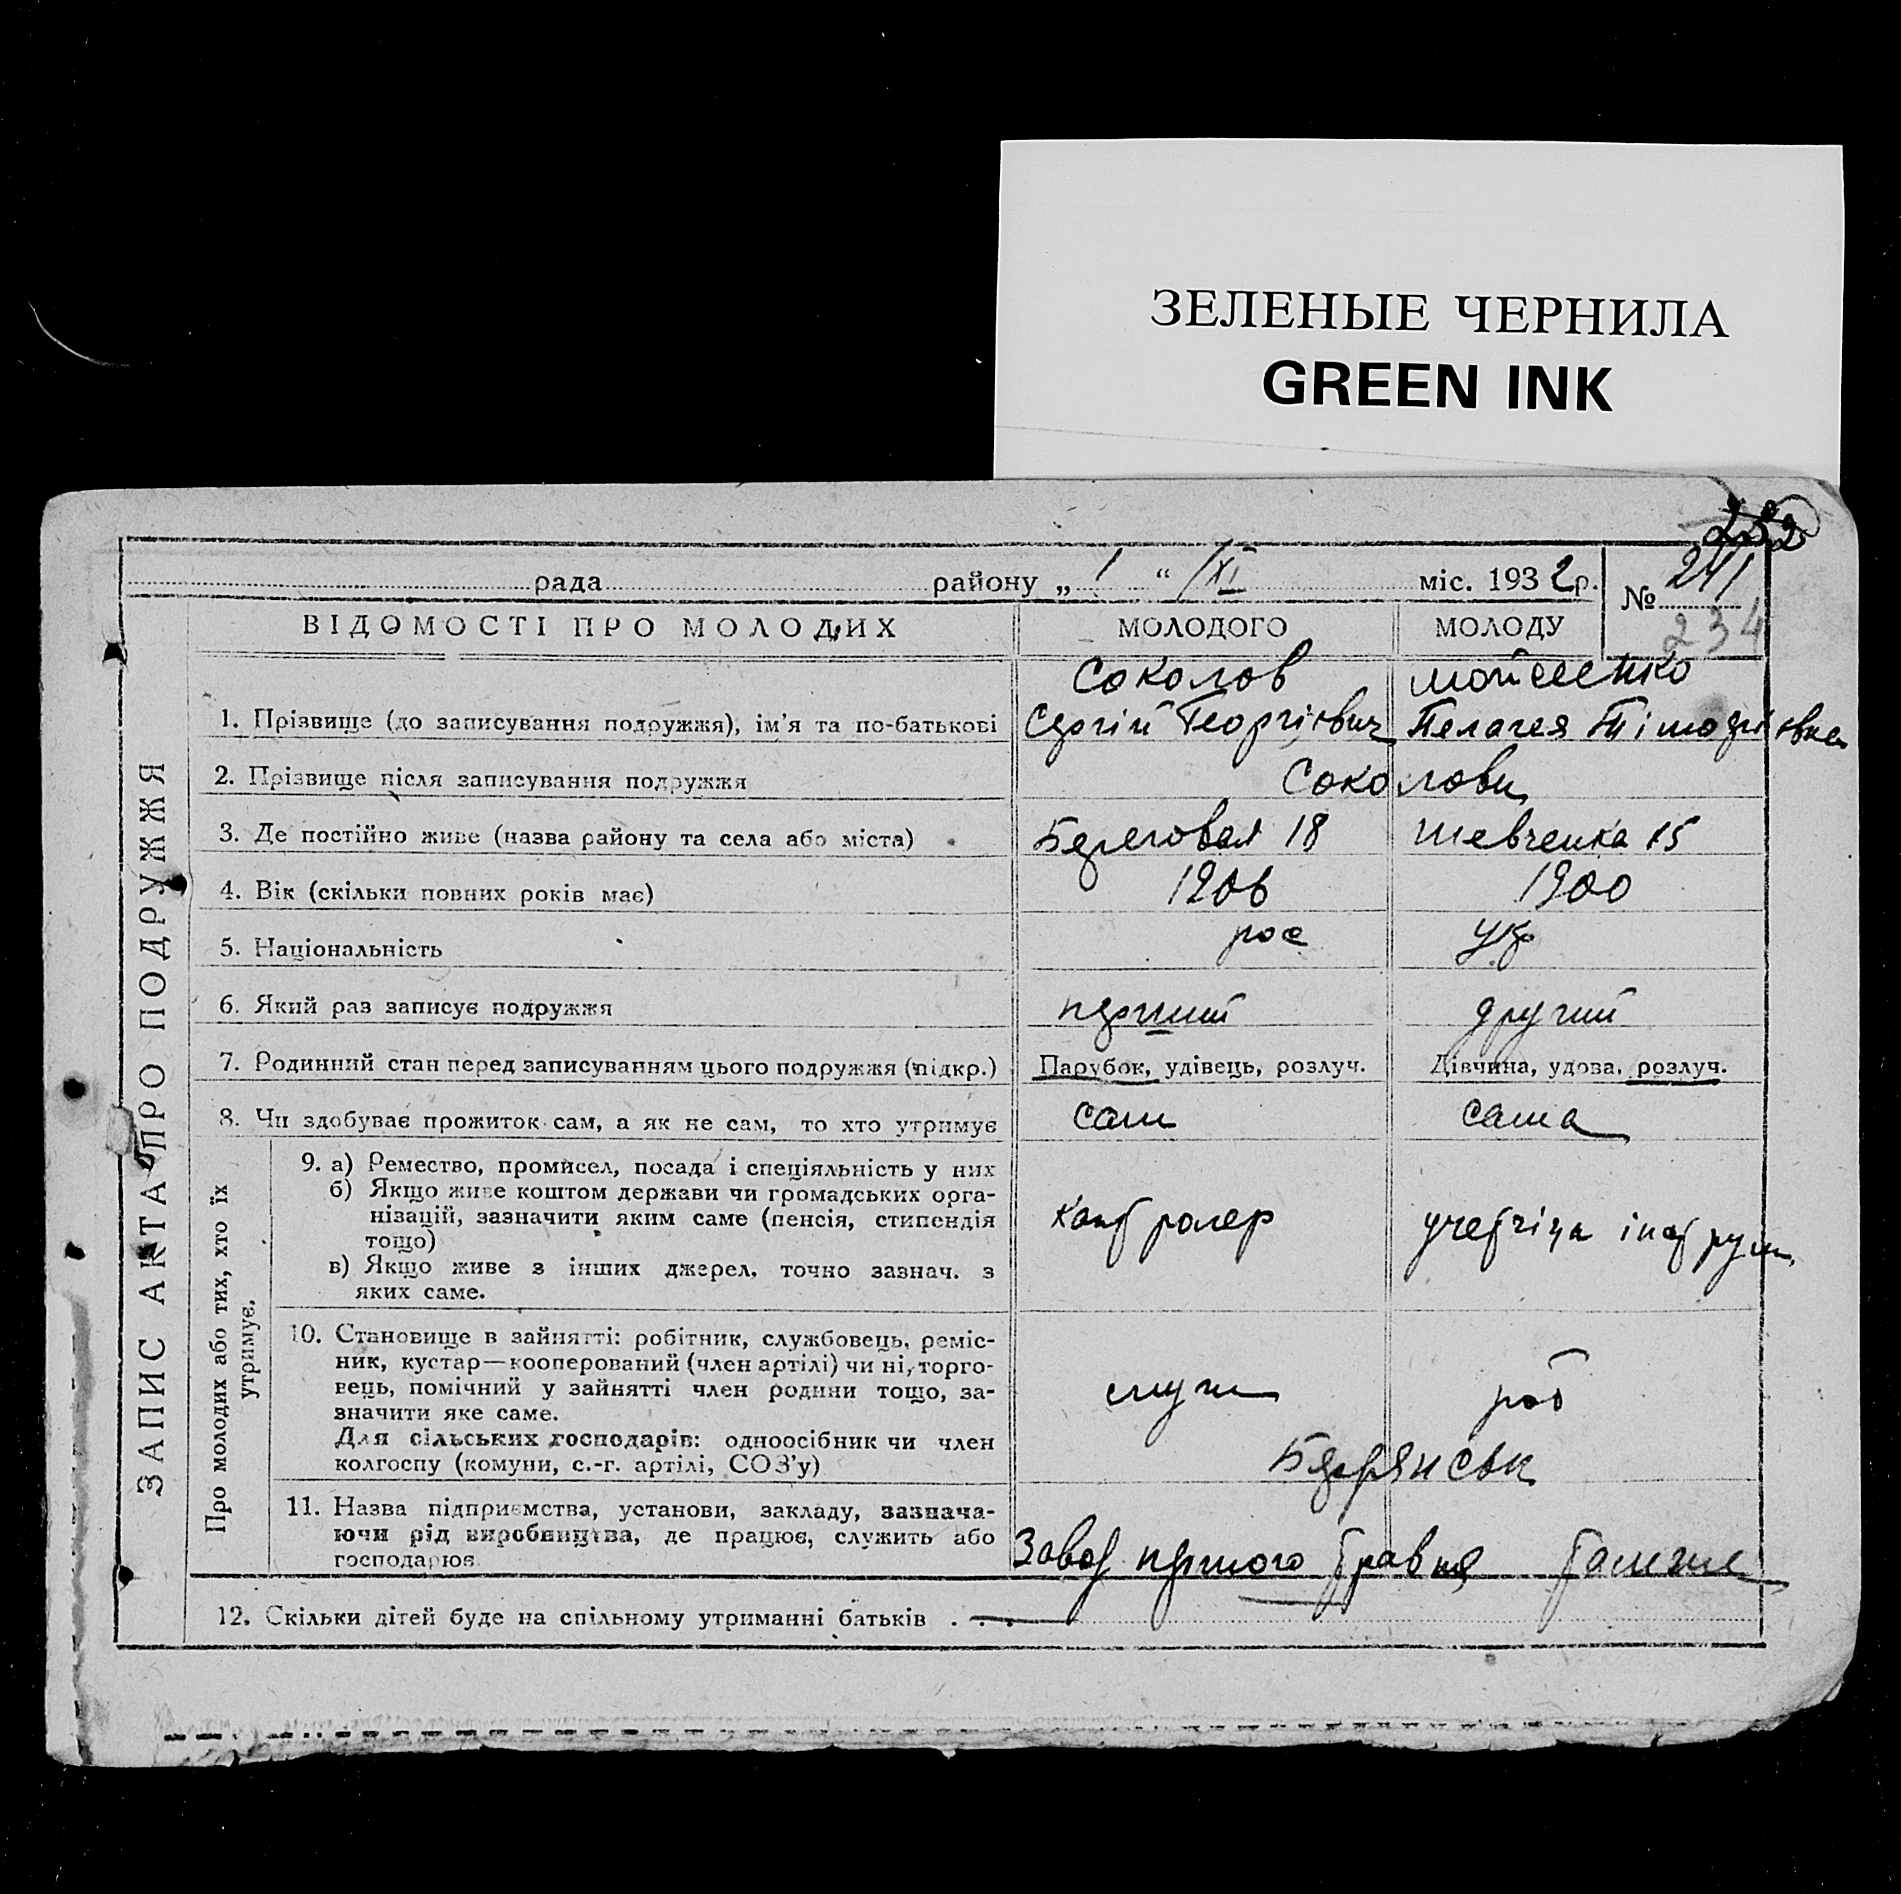 ЗЕЛЕНЫЕ ЧЕРНИЛА
GREEN INK
252
рада района „ 1 “ /XI міс. 1932 р. № 241
234
ВІДОМОСТІ ПРО МОЛОДИХ МОЛОДОГО МОЛОДУ
Соколов Мойсеенко
1. Прізвище (до записування подружжя), ім'я та по-батькові Сергій Георгієвич Пелагея Тімофіївна
2. Прізвище після записування подружжя Соколови
3. Де постійно живе (назва району та села або міста) Береговая 18 Шевченка 15
4. Вік (скільки повних років має) 1906 1900
5. Національність рос укр
6. Який раз записує подружжя перший другий
7. Родинний стан перед записуванням цього подружжя (підкр.) Парубок, удівець, розлуч. Дівчина, удова, розлуч.
8. Чи здобуває прожиток сам, а як не сам, то хто утримує сам сама
ЗАПИС АКТА ПРО ПОДРУЖЖЯ
Про молодих або тих, хто їх утримує.
9. а) Ремество, промисел, посада і спеціяльність у них
б) Якщо живе коштом держави чи громадських орга-
нізацій, зазначити яким саме (пенсія, стипендія
тощо)
в) Якщо живе з інших джерел, точно зазнач. з
яких саме.
контролер учетчіца інструм
10. Становище в зайнятті: робітник, службовець, реміс-
ник, кустар—кооперований (член артілі) чи ні, торго-
вець, помічний у зайнятті член родини тощо, за-
значити яке саме.
Для сільських господарів: одноосібник чи член
колгоспу (комуни, с.-г. артілі, СОЗ'у)
служ роб
Бердянськ
11. Назва підприємства, установи, закладу, зазнача-
ючи рід виробництва, де працює, служить або
господарює
Завод першого травня тамже
12. Скільки дітей буде на спільному утриманні батьків . . . —